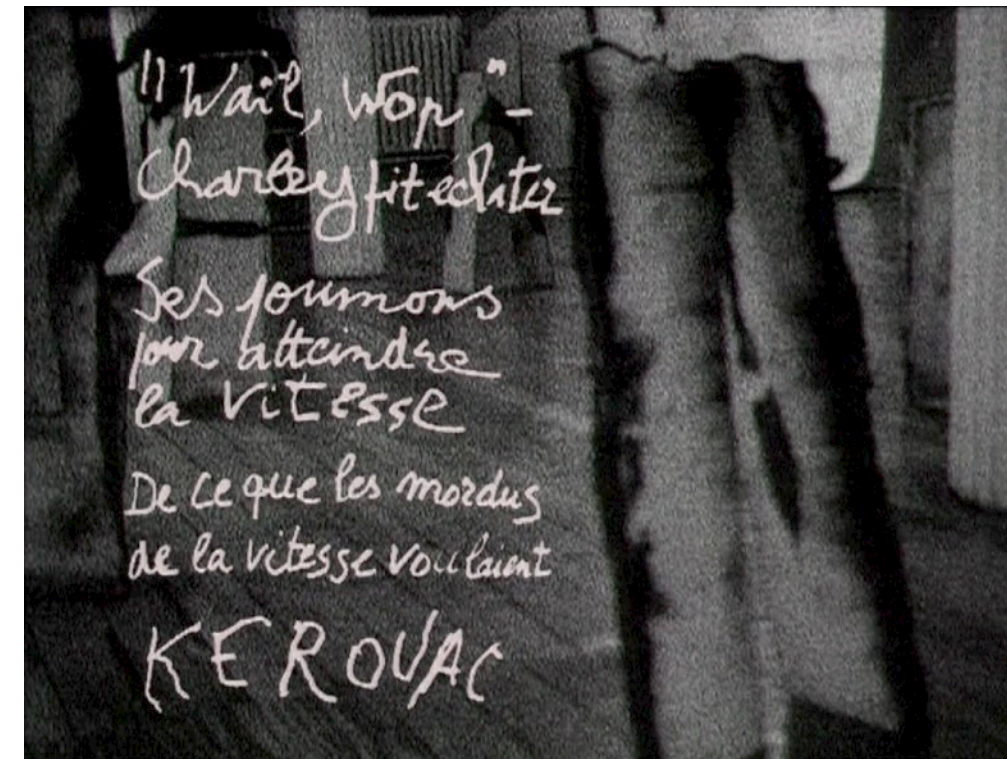 "Wail, Wop" -
Charley fit éclater
Ses poumons
pour atteindre
la vitesse
De ce que les mordus
de la vitesse voulaient
KEROUAC